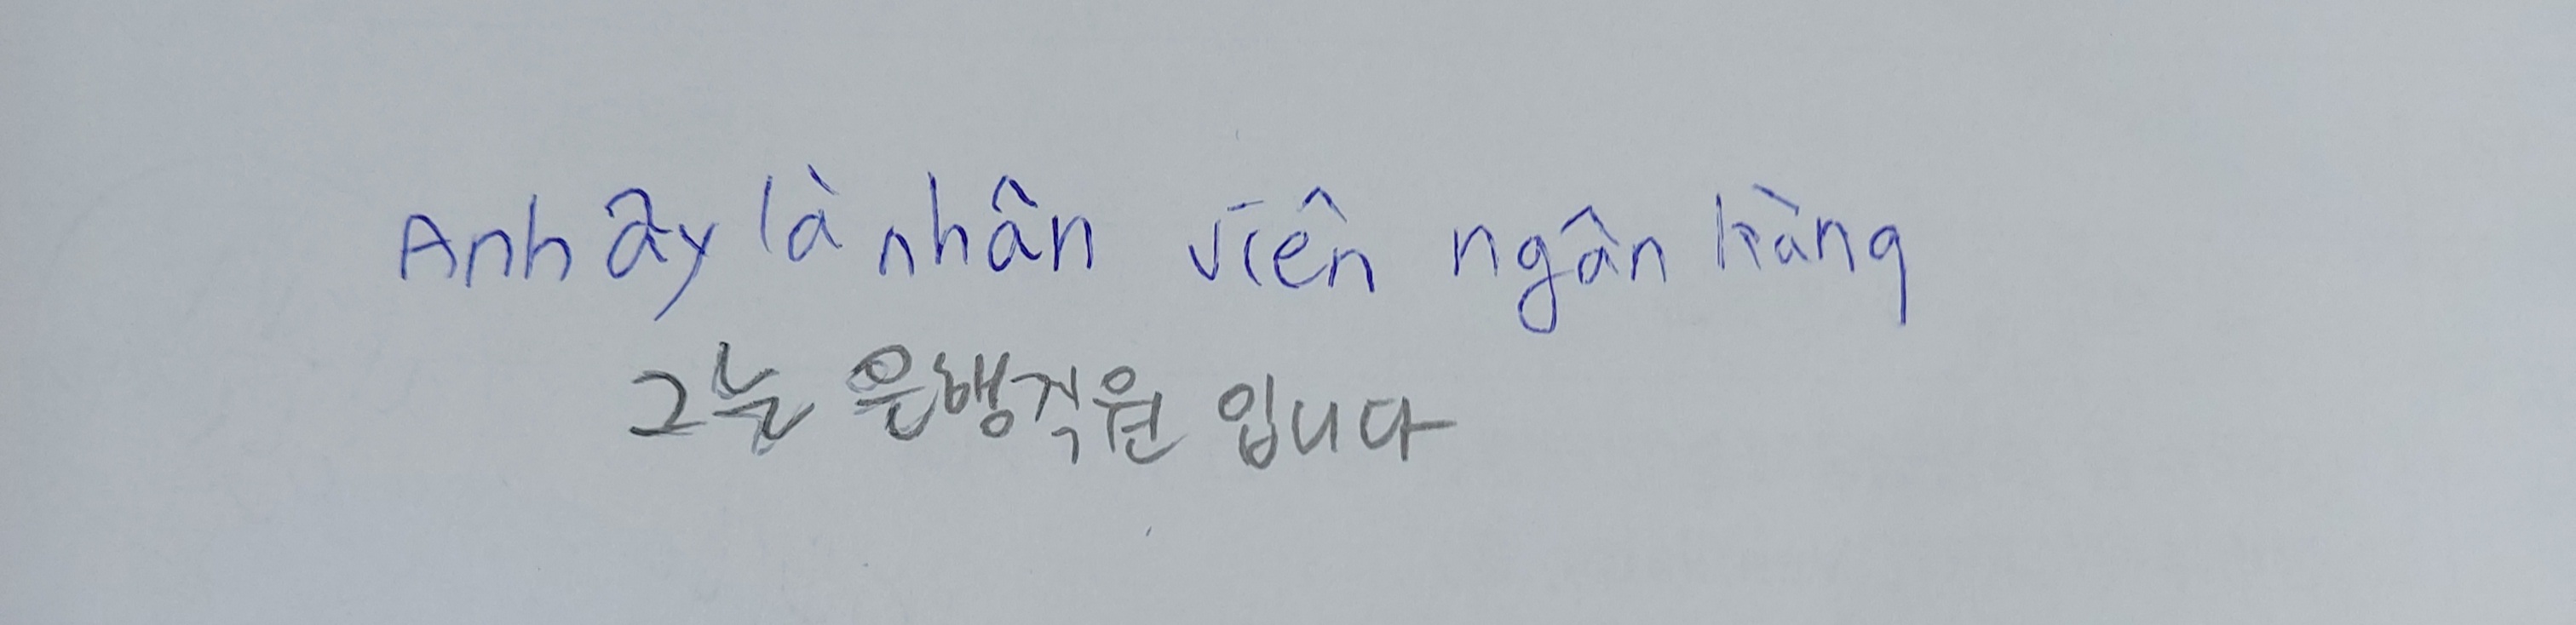 Anh ấy là nhân viên ngân hàng
그는 은행직원 입니다